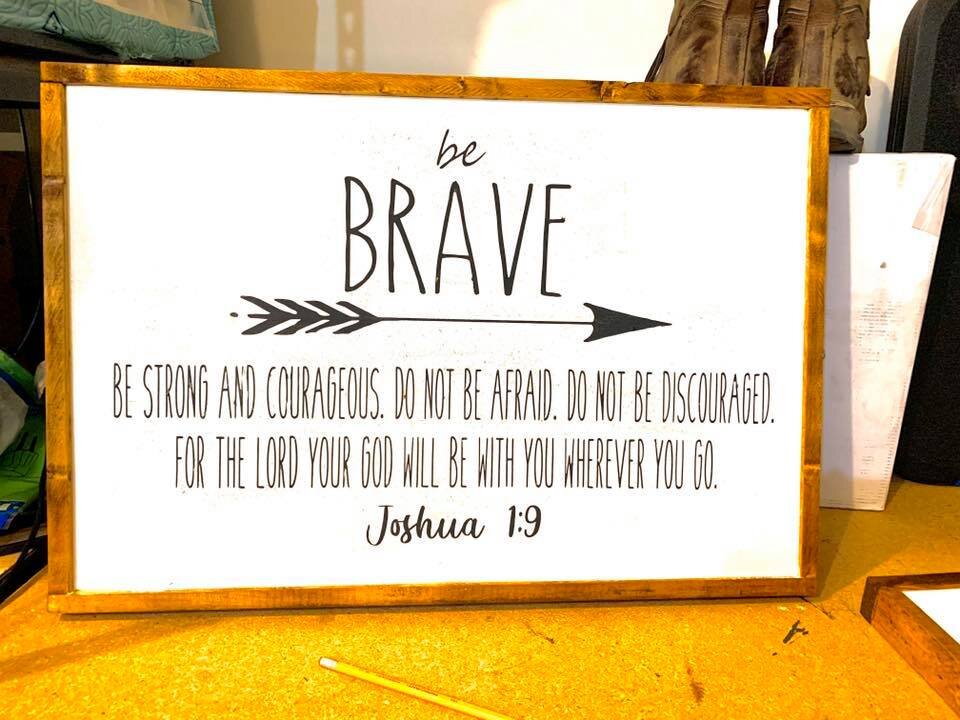 be
BRAVE
BE STRONG AND COURAGEOUS. DO NOT BE AFRAID. DO NOT BE DISCOURAGED.
FOR THE LORD YOUR GOD WILL BE WITH YOU WHEREVER YOU GO.
Joshua 1:9